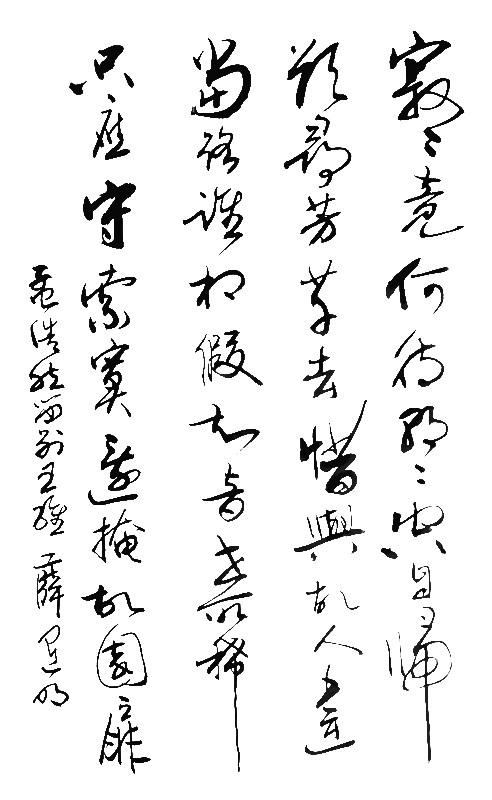 寂〻竟何待朝〻空自歸
欲尋芳草去惜與故人違
當路誰相假知音世所稀
只應守索寞還掩故園扉
孟浩然留别王維 薛明